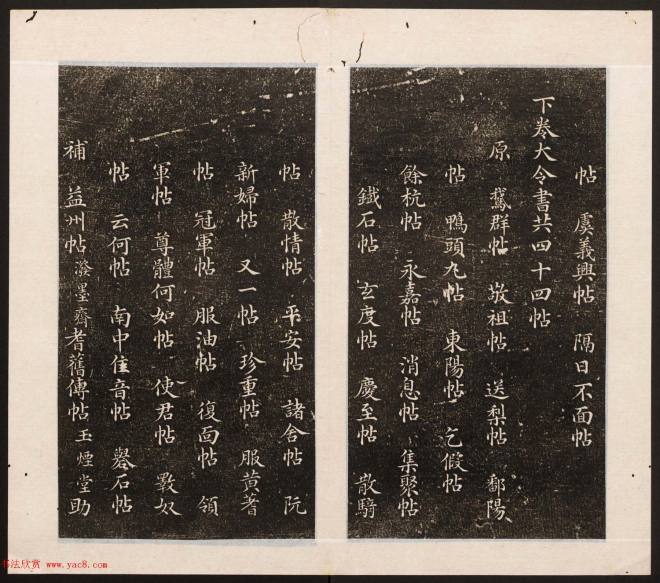 帖 虞義興帖 隔日不面帖
下卷大令書共四十四帖
原 鵞群帖 敬祖帖 送梨帖 鄱陽
帖 鴨頭丸帖 東陽帖 乞假帖
餘杭帖 永嘉帖 消息帖 集聚帖
鐵石帖 玄度帖 慶至帖 散騎
帖 散情帖 平安帖 諸舍帖 阮
新婦帖 又一帖 珍重帖 服黄耆
帖 冠軍帖 服油帖 復面帖 領
軍帖 尊體何如帖 使君帖 斁奴
帖 云何帖 南中佳音帖 礜石帖
補 益州帖 潑墨齋耆舊傳帖 玉煙堂助
书法欣赏 www.yac8.com